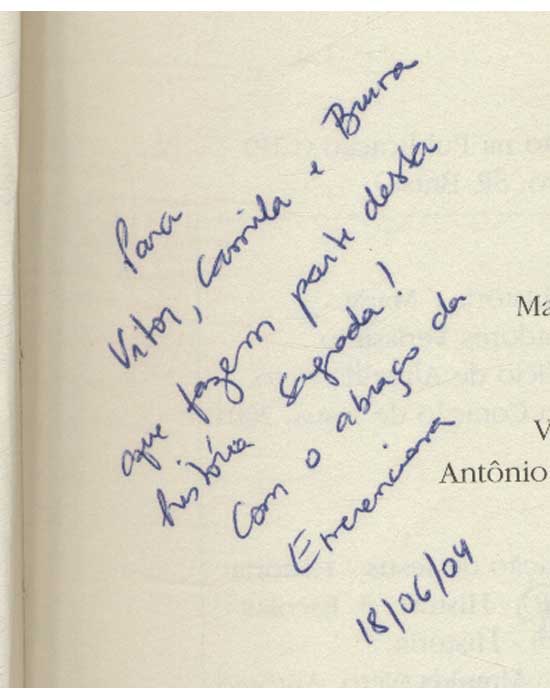 Para
Vitor, Camila e Bruna
que fazem parte desta
história sagrada!
Com o abraço da
18/06/04
Ma
V
Antônio